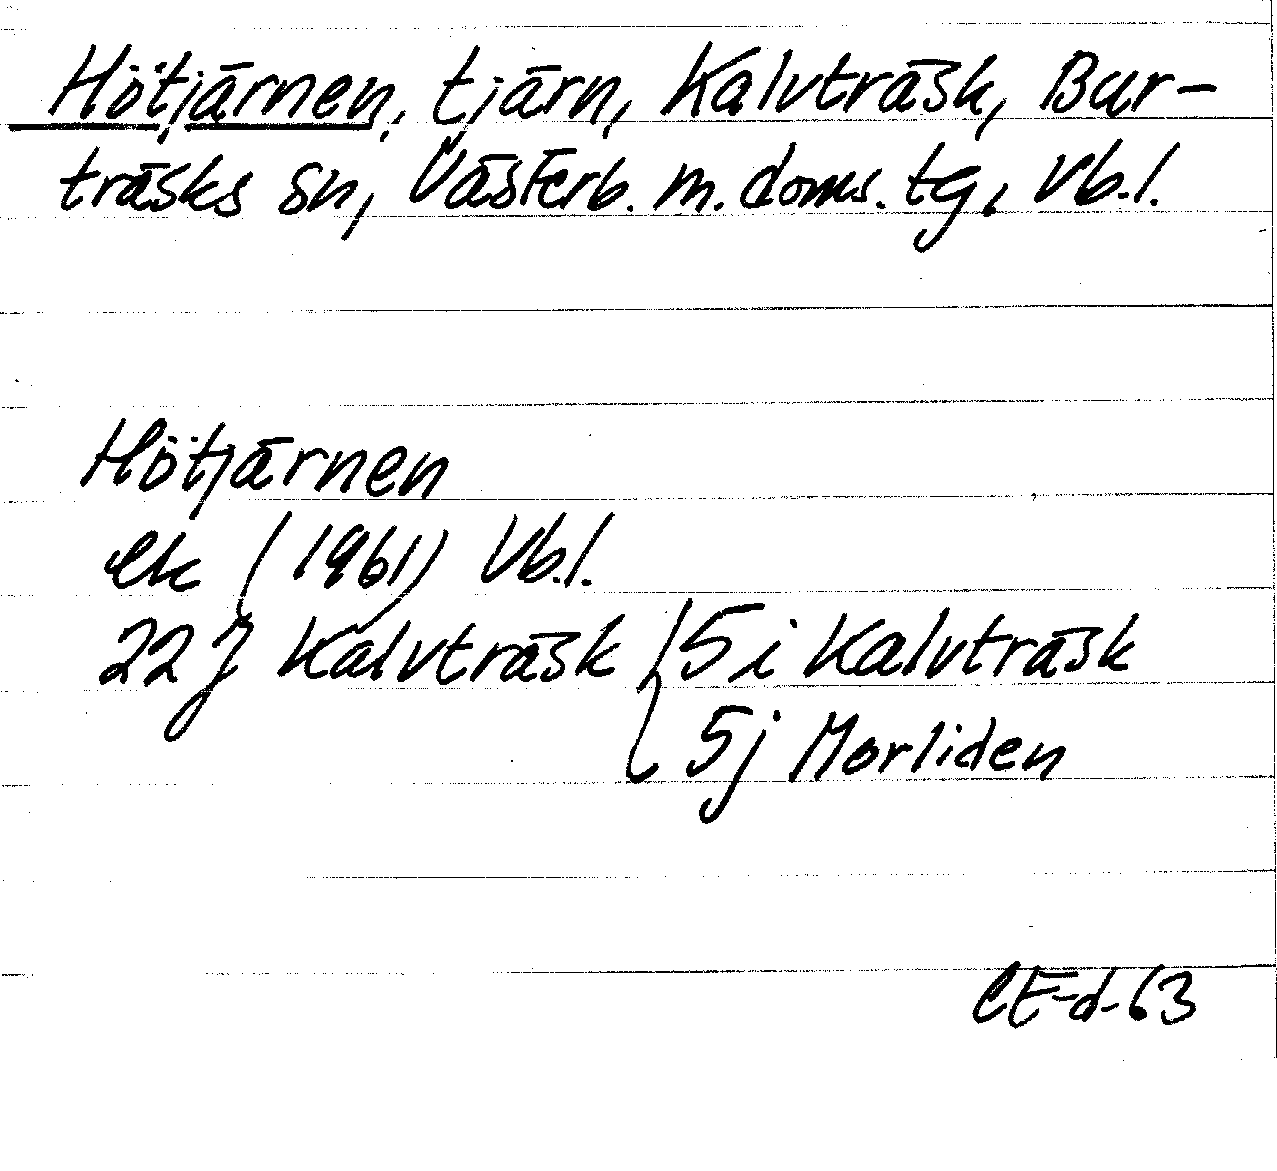 Hötjärnen, tjärn, Kalvträsk, Bur-
träsks sn, Västerb. m. doms. tg, Vb.l.
Hötjärnen
ek (1961) Vb.l.
22 J Kalvträsk { 5 i Kalvträsk
5j Morliden
CE-d-63